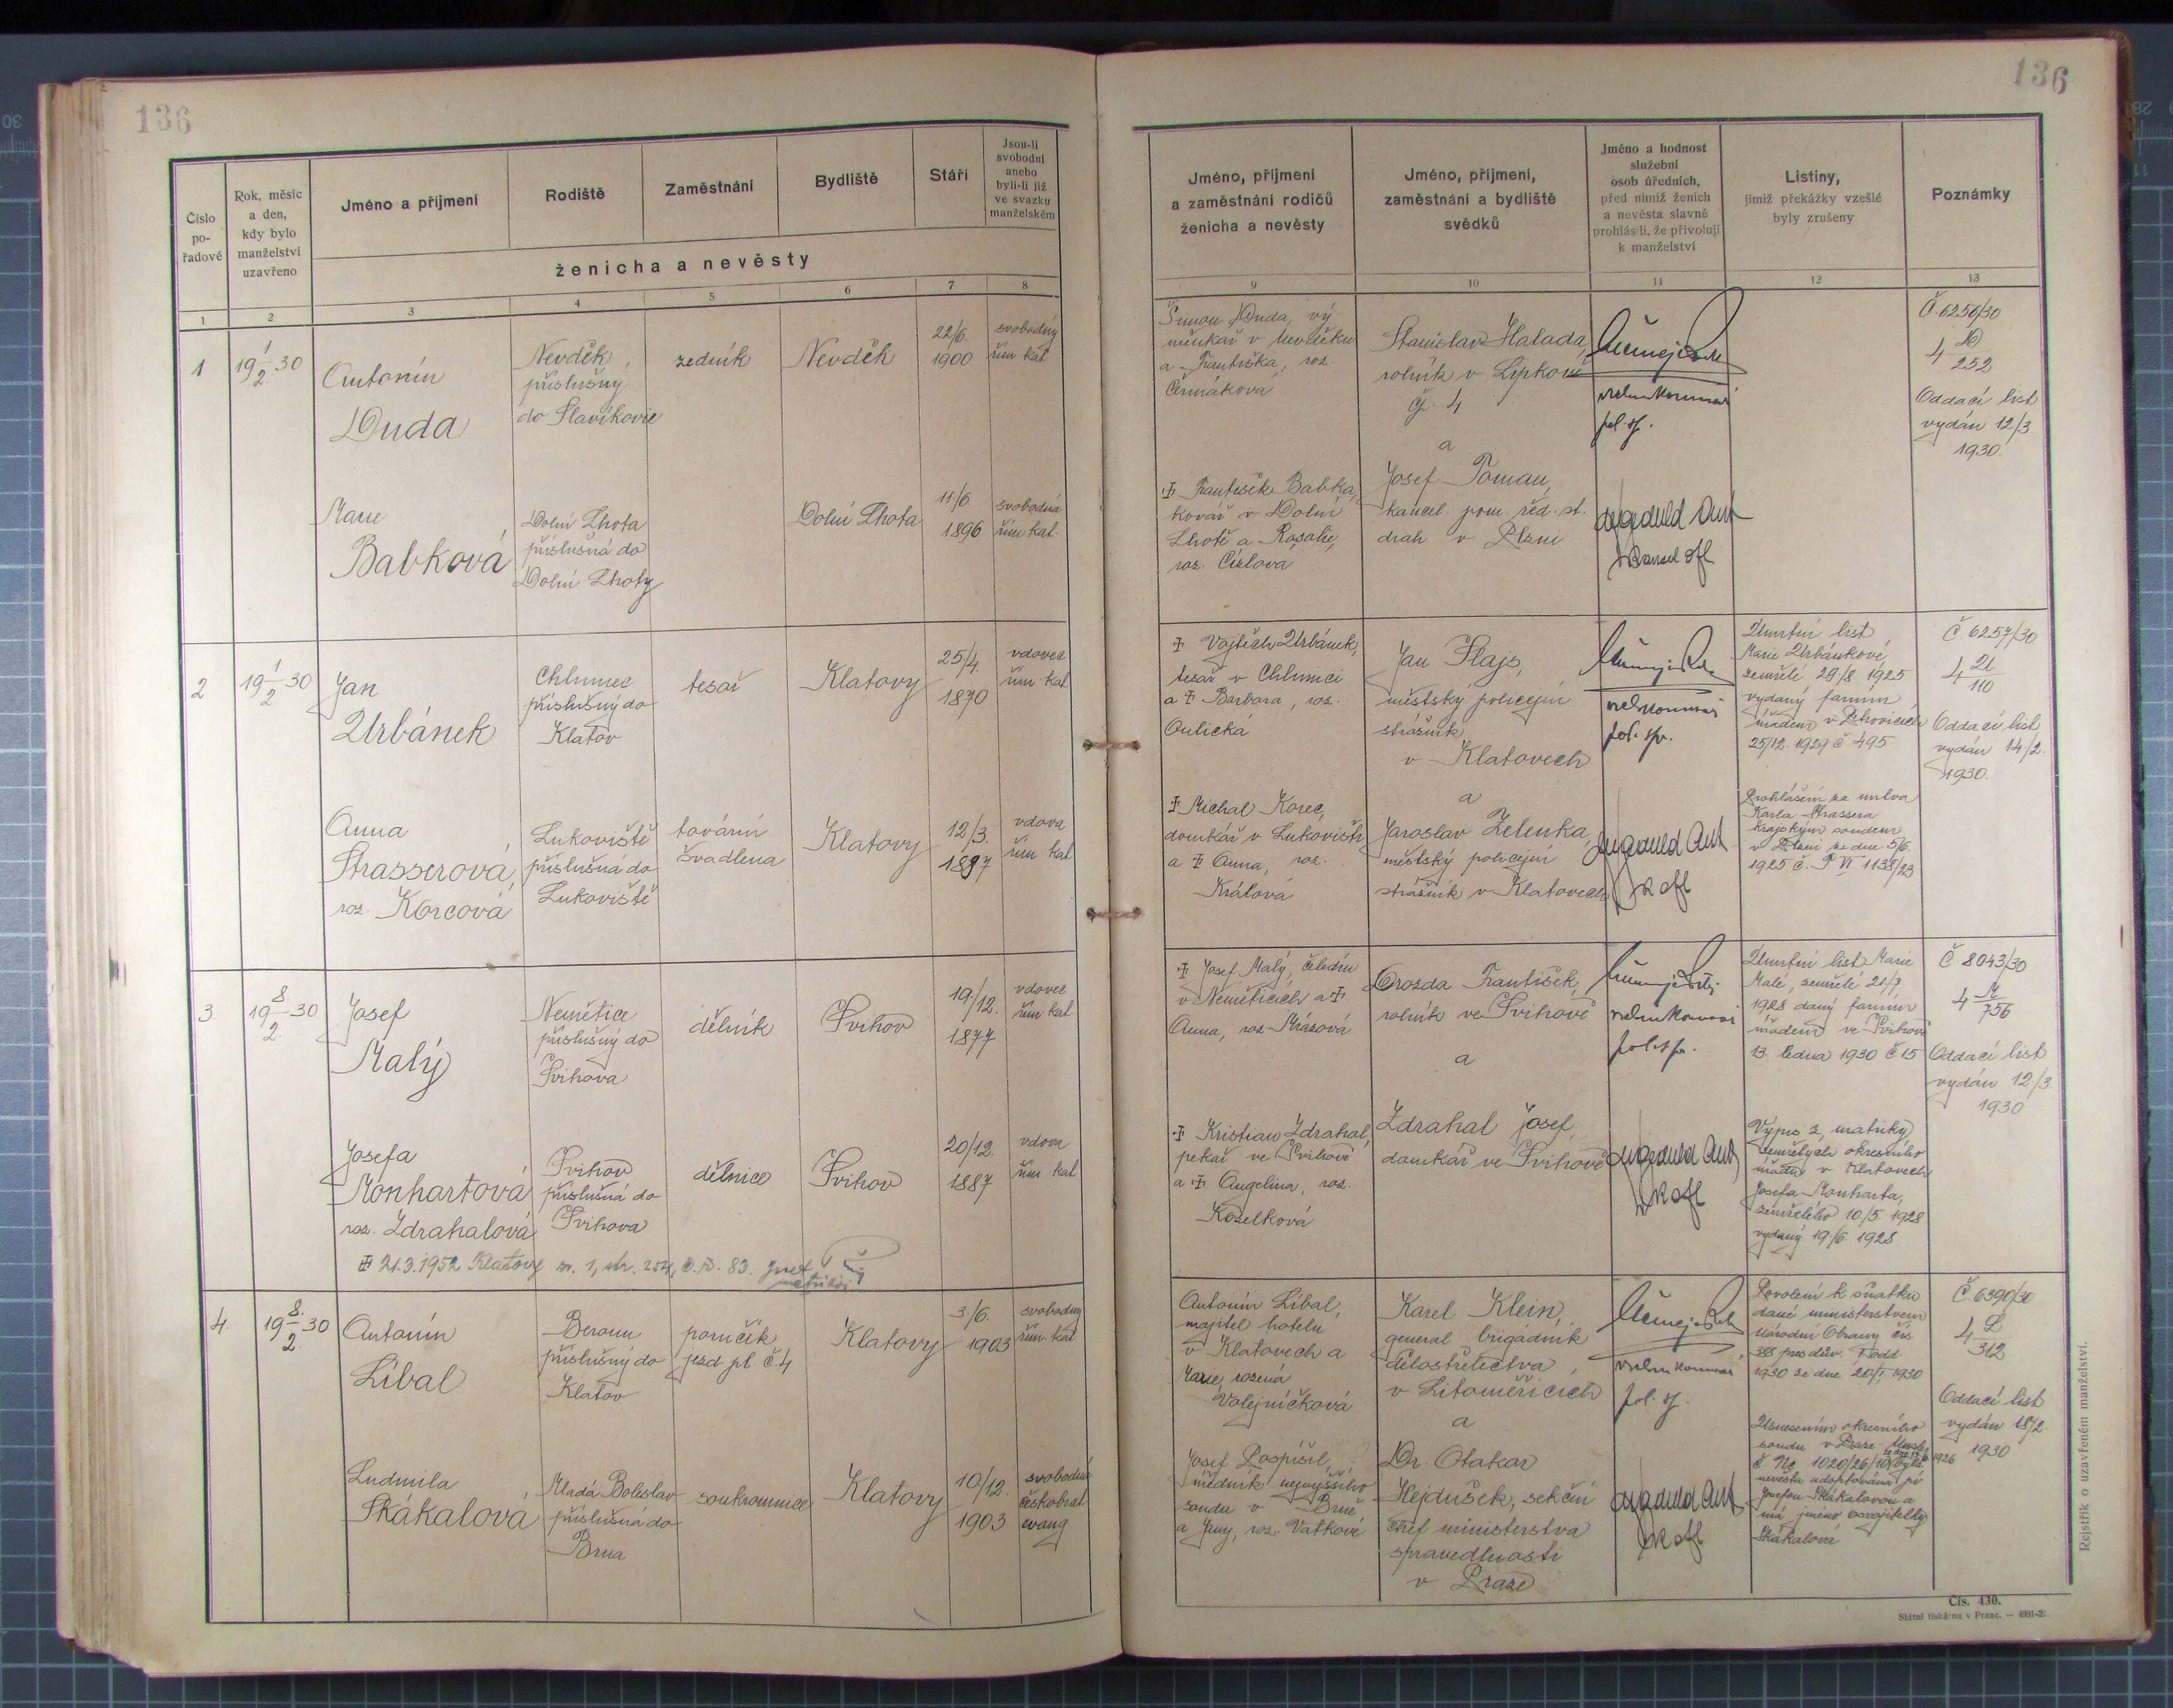 136
136
Číslo
po-
řadové
Rok, měsíc
a den,
kdy bylo
manželství
uzavřeno
Jméno a příjmení
Rodiště
Zaměstnání
Bydliště
Stáří
Jsou-li
svobodni
anebo
byli-li již
ve svazku
manželském
ženicha a nevěsty
1
2
3
4
5
6
7
8
Jméno, příjmení
a zaměstnání rodičů
ženicha a nevěsty
Jméno, příjmení,
zaměstnání a bydliště
svědků
Jméno a hodnost
služební
osob úředních,
před nimiž ženich
a nevěsta slavně
prohlásili, že přivolují
k manželství
Listiny,
jimiž překážky vzešlé
byly zrušeny
Poznámky
9
10
11
12
13
1
19 1/2 30
Antonín
Duda
Nevděk,
příslušný
do Slavíkovic
zedník
Nevděk
22/6.
1900
svobodný
řím kat
Šimon Duda, vý-
měnkář v Nevděku
a Františka, roz.
Čermákova
Stanislav Halada,
rolník v Lipkové
čp. 4
a
Č. 6256/30
4 D/252
Oddací list
vydán 12./3.
1930
Marie
Babková
Dolní Lhota
příslušná do
Dolní Lhoty
Dolní Lhota
11/6
1896
svobodná
řím kat.
František Babka,
kovář v Dolní
Lhotě a Rosalie,
roz. Císlova
Josef Toman,
kancel pom řed. st.
drah v Plzni
2
19 1/2 30
Jan
Urbánek
Chlumec
příslušný do
Klatov
tesař
Klatovy
25/4.
1870
vdovec
řím kat
Vojtěch Urbánek,
tesař v Chlumci
a Barbara, roz.
Aulická
Jan Flajs,
městský policejní
strážník
v Klatovech
a
Úmrtní list
Marie Urbánkové,
zemřelé 29/8. 1925
vydaný farním
úřadem v Běhovicích
25/12. 1929 č 495
Č 6257/30
4 U/110
Oddací list
vydán 14/2.
1930.
Anna
Strasserová,
roz. Korcová
Lukoviště
příslušná do
Lukoviště
tovární
švadlena
Klatovy
12/3.
1887
vdova
řím kat
Michal Korec,
domkář v Lukovišti
a Anna, roz.
Králova
Jaroslav Zelenka,
městský policejní
strážník v Klatovech
Prohlášení za mrtva
Karla Strassera
krajským soudem
v Plzni ze dne 5/6
1925 č. T VI 1138/23
3
19 8/2 30
Josef
Malý
Nemětice
příslušný do
Švihova
dělník
Švihov
19/12.
1877
vdovec
řím kat.
Josef Malý, čeledín
v Němčicích a
Anna, roz Mrázová
Drozda František,
rolník ve Švihově
a
Úmrtní list Marie
Malé, zemřelé 21/7
1928 daný farním
úřadem ve Švihově
13. ledna 1930 č. 15
Č 8043/30
4 M/756
Oddací list
vydán 12/3.
1930
Josefa
Monhartová
roz. Zdrahalová
Švihov
příslušná do
Švihova
dělnice
Švihov
20/12.
1887
vdova
řím kat
21.3.1952 Klatovy sv. 1, str. 254, č.ř. 83.
Kristian Zdrahal,
pekař ve Švihově
a Angelina, roz.
Koželková
Zdrahal Josef,
domkář ve Švihově
Výpis z matriky
zemřelých okresního
úřadu v Klatovech
Josefa Monharta,
zemřelého 10/5. 1928
vydaný 19/6 1928
4.
19 8./2. 30
Antonín
Líbal
Beroun
příslušný do
Klatov
poručík
jezd. pl. č. 4
Klatovy
3./6.
1903
svobodný
řím. kat
Antonín Líbal,
majitel hotelu
v Klatovech a
Marie, rozená
Volejníčková
Karel Klein,
general brigádník
dělostřelectva
v Litoměřicích
a
Povolení k sňatku
dané ministerstvem
Národní Obrany čís.
388 pres dův. I odd.
1930 ze dne 20/1 1930
Č. 6390/30
4 L/312
Oddací list
vydán 18/2
1930
Ludmila
Skákalová
Mladá Boleslav
příslušná do
Brna
soukromnice
Klatovy
10/12.
1903
svobodná
českobrat
evang
Josef Pospíšil,
úředník nejvyššího
soudu v Brně
a Jeny, roz. Vaťkové
Dr. Otakar
Hejdušek, sekční
šéf ministerstva
spravedlnosti
v Praze
Usnesením okresního
soudu v Praze
nevěsta adoptována
Josefou Skákalovou a
má jméno osvojitelky
Skákalová
Rejstřík o uzavřeném manželství.
Čís. 430.
Státní tiskárna v Praze. —